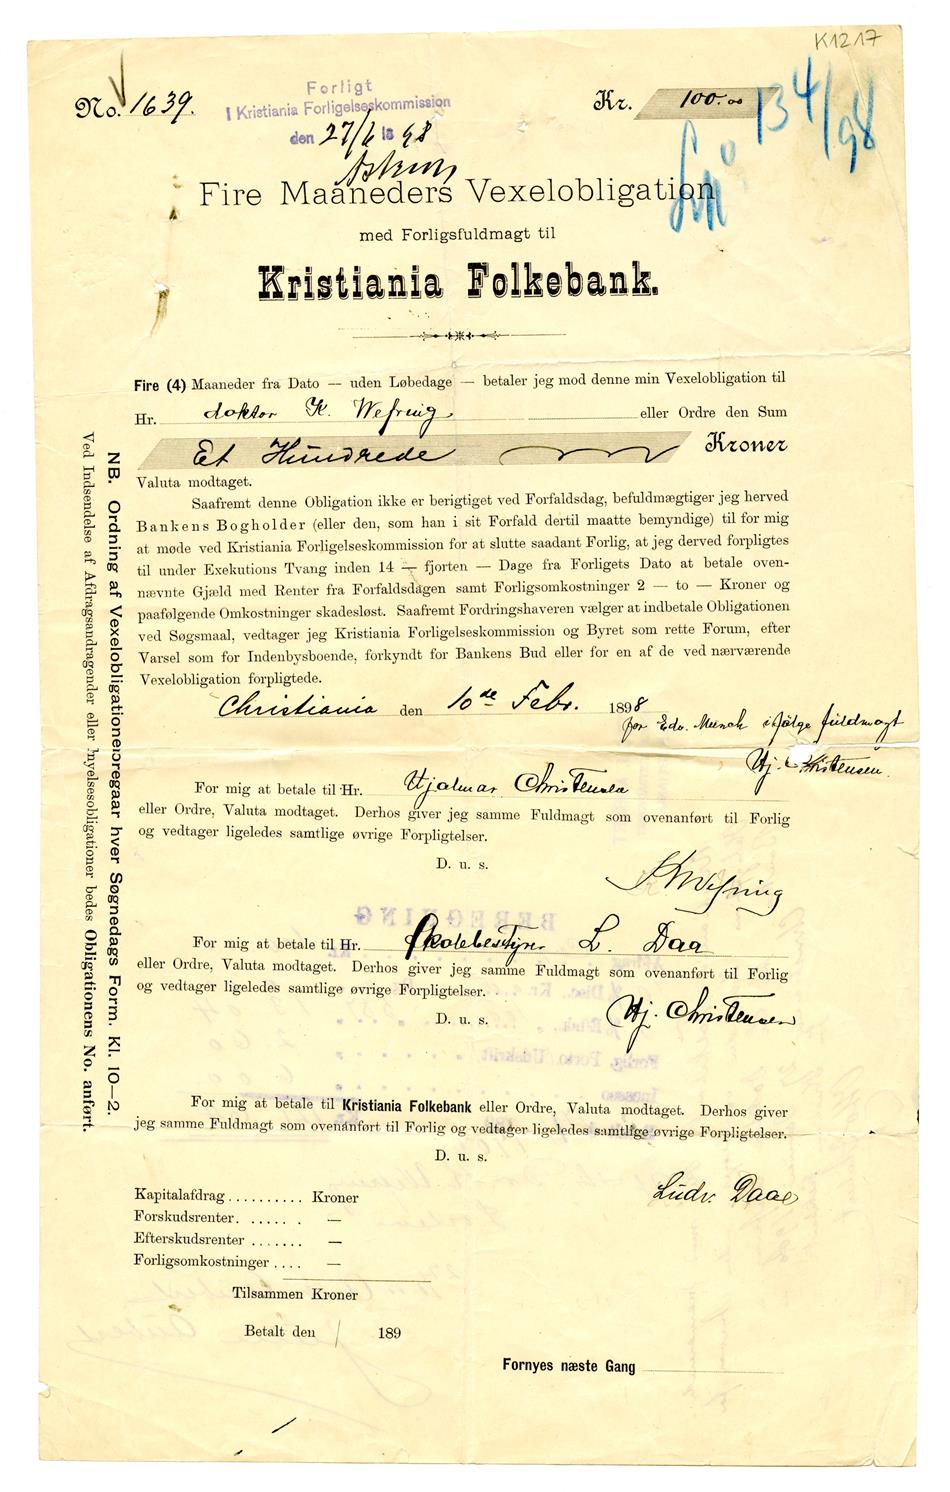 K1217
No. 1639.
Forligt
I Kristiania Forligelseskommission
den 27/6 18 98
Kr. 100.00
134/98
Fire Maaneders Vexelobligation
med Forligsfuldmagt til
Kristiania Folkebank.
Fire (4) Maaneder fra Dato — uden Løbedage — betaler jeg mod denne min Vexelobligation til
Hr. doktor K. Wefring eller Ordre den Sum
Et Hundrede Kroner
Valuta modtaget.
Saafremt denne Obligation ikke er berigtiget ved Forfaldsdag, befuldmægtiger jeg herved
Bankens Bogholder (eller den, som han i sit Forfald dertil maatte bemyndige) til for mig
at møde ved Kristiania Forligelseskommission for at slutte saadant Forlig, at jeg derved forpligtes
til under Exekutions Tvang inden 14 — fjorten — Dage fra Forligets Dato at betale oven-
nævnte Gjæld med Renter fra Forfaldsdagen samt Forligsomkostninger 2 — to — Kroner og
paafølgende Omkostninger skadesløst. Saafremt Fordringshaveren vælger at indbetale Obligationen
ved Søgsmaal, vedtager jeg Kristiania Forligelseskommission og Byret som rette Forum, efter
Varsel som for Indenbysboende, forkyndt for Bankens Bud eller for en af de ved nærværende
Vexelobligation forpligtede.
Christiania den 10de Febr. 1898
for Edv. Munch ifølge fuldmagt
Hj. Christensen
For mig at betale til Hr. Hjalmar Christensen
eller Ordre, Valuta modtaget. Derhos giver jeg samme Fuldmagt som ovenanført til Forlig
og vedtager ligeledes samtlige øvrige Forpligtelser.
D. u. s.
K Wefring
For mig at betale til Hr. Skolebestyrer L. Daa
eller Ordre, Valuta modtaget. Derhos giver jeg samme Fuldmagt som ovenanført til Forlig
og vedtager ligeledes samtlige øvrige Forpligtelser.
D. u. s.
Hj. Christensen
For mig at betale til Kristiania Folkebank eller Ordre, Valuta modtaget. Derhos giver
jeg samme Fuldmagt som ovenanført til Forlig og vedtager ligeledes samtlige øvrige Forpligtelser.
D. u. s.
Ludv. Daae
Kapitalafdrag .......... Kroner
Forskudsrenter. ...... —
Efterskudsrenter ....... —
Forligsomkostninger .... —
Tilsammen Kroner
Betalt den / 189
Fornyes næste Gang
NB. Ordning af Vexelobligationer foregaar hver Søgnedags Form. Kl. 10—2.
Ved Indsendelse af Afdragsandragender eller Fornyelsesobligationer bedes Obligationens No. anført.
BEREGNING